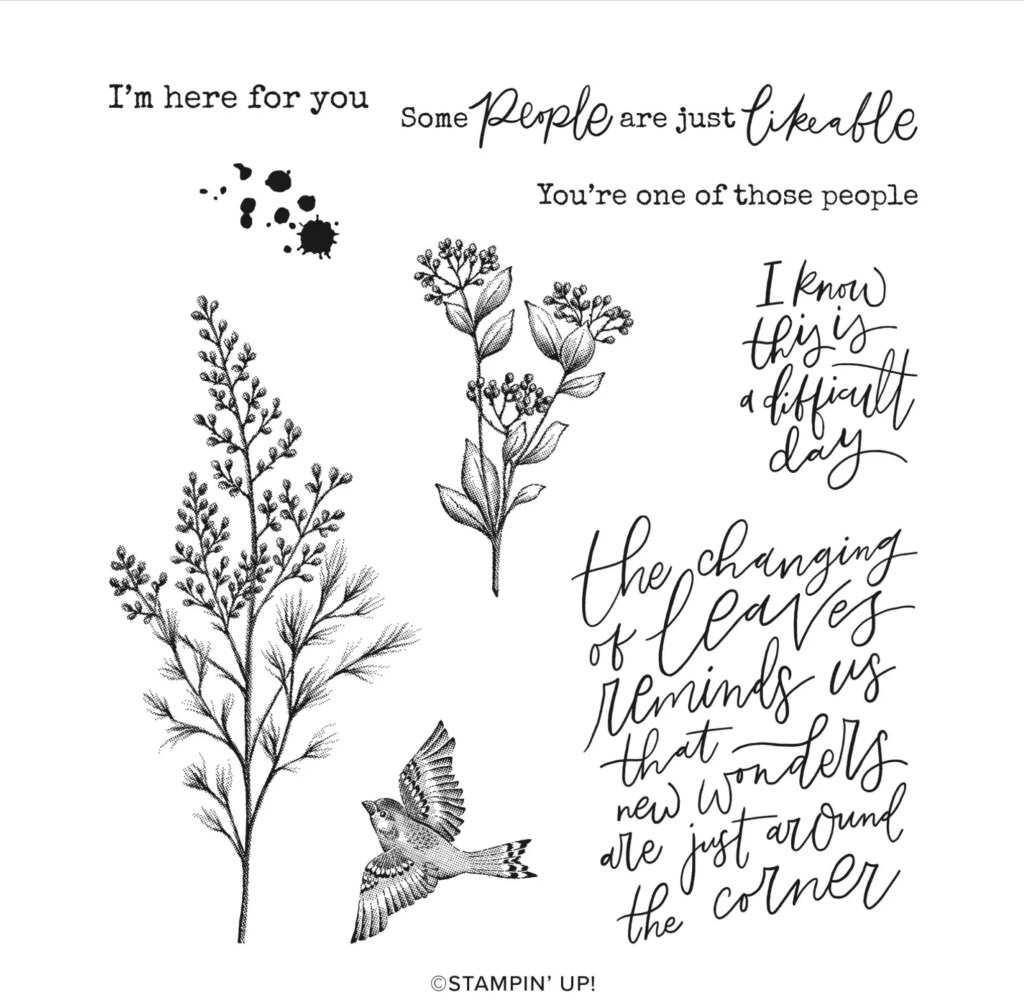 I'm here for you
Some people are just likeable
You're one of those people
I know
this is
a difficult
day
the changing
of leaves
reminds us
that
new wonders
are just around
the corner
©STAMPIN' UP!